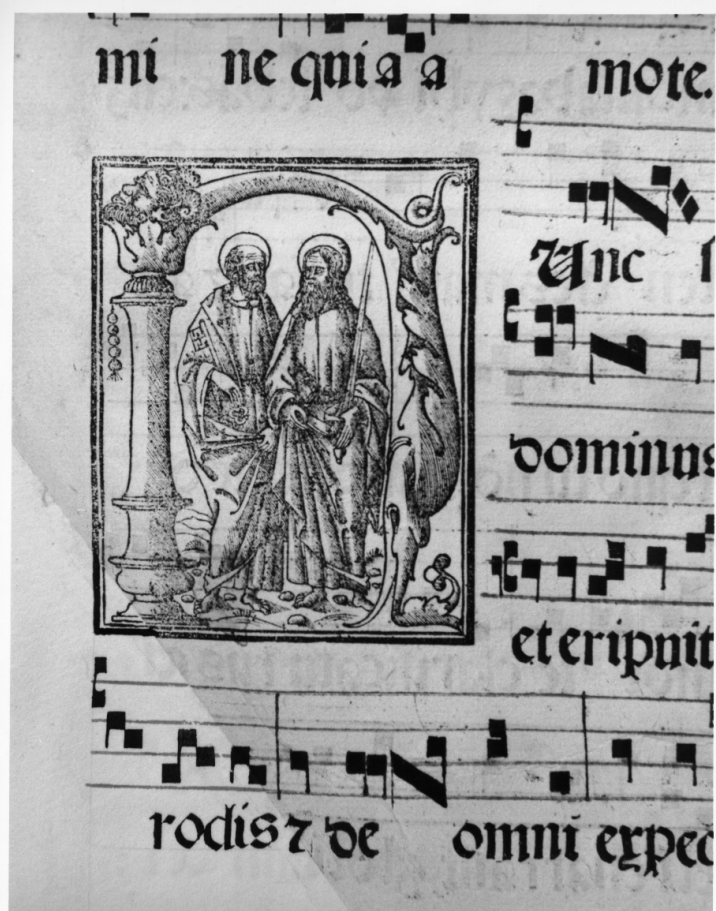 mi ne quia a mote.
Unc
dominus
et eripuit
rodis ⁊ de omni expec